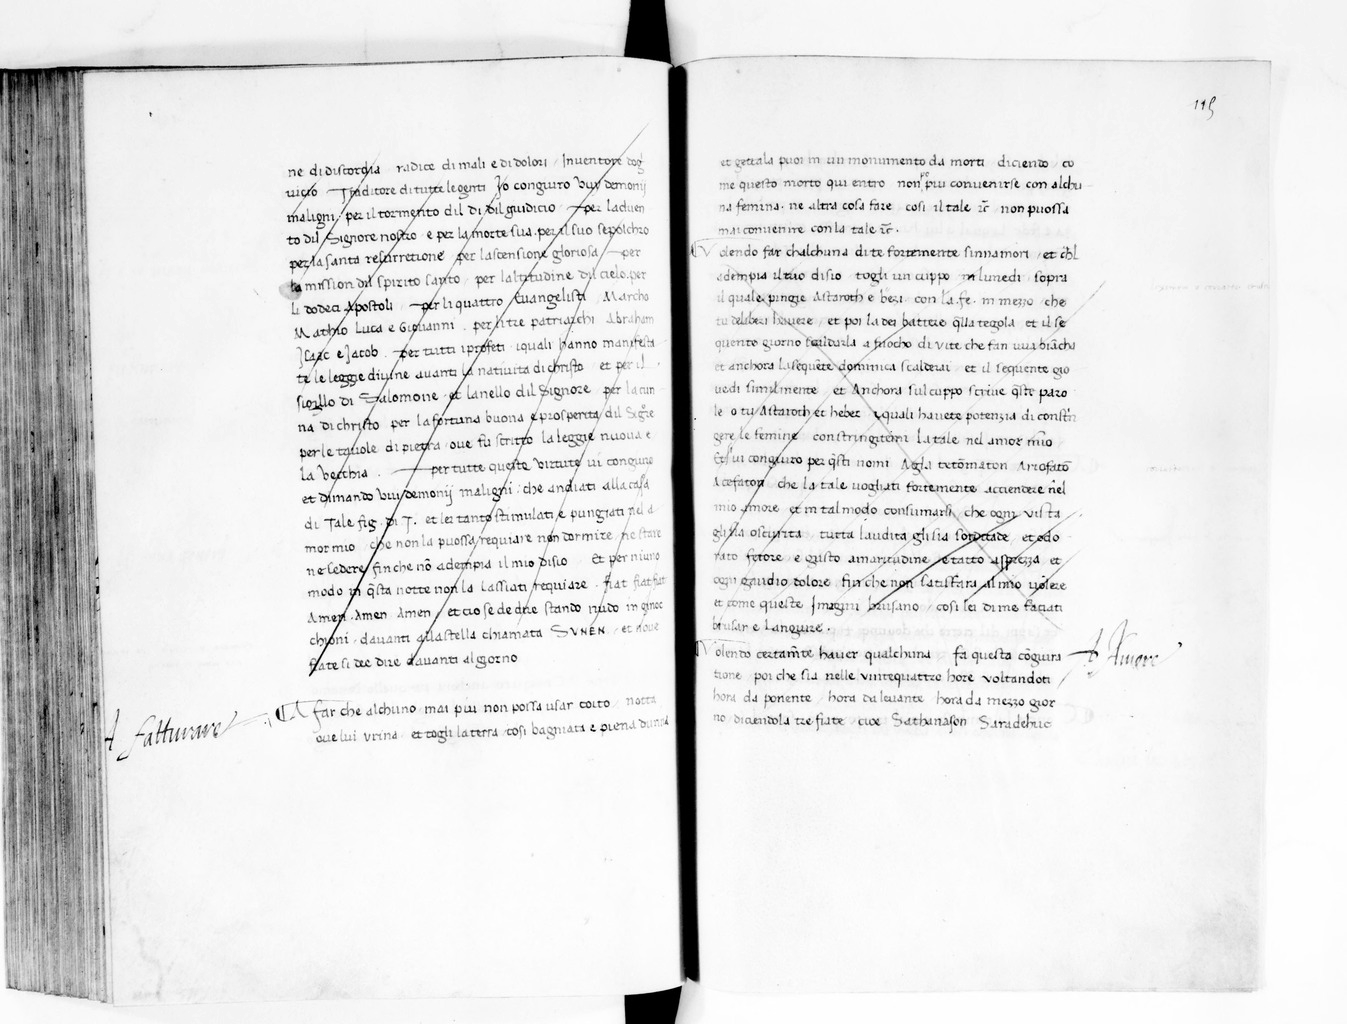 ne di discordia radice di mali e di dolori / Inventore dog
vitio Traditore di tutte le genti Io conguro vui demonij
maligni / per il tormento dil di dil guidicio per laduen
to dil Signore nostro e per la morte sua . per il suo sepolchro
per la santa resurretione per lascensione gloriosa per
la mission dil spirito santo / per laltitudine dil cielo . per
li dodeci Apostoli per li quattro Euangelisti Marcho
Mathio Luca e Giouanni . per li tre patriarchi Abraham
Isaac e Jacob . per tutti i profeti iquali hanno manifesta
te le leggie diuine auanti la natiuita di christo et per il
sigillo di Salomone et lanello dil Signore per la cun
na di christo per la fortuna buona e prosperita dil
per le tauole di pietra oue fu scritto la leggie nuoua e
la vecchia . per tutte queste virtute vi conguro
et dimando vui demonij maligni : che andiati alla casa
di Tale fig. di T. et lei tanto stimulati e pungiati nel a
mor mio che non la puossa requiare non dormire ne stare
ne sedere fin che nō adempia il mio disio Et per niuno
modo in q̄sta notte non la lassiati requiare . fiat fiat fiat
Amen . Amen Amen et cio se de dire stando nudo in ginoc
chioni / dauanti alla stella chiamata SVNEN . et noue
fiate si dee dire dauanti al gorno
A fatturare
A far che alchuno mai piu non possa usar coito notta
oue lui vrina et togli la terra cosi bagniata e piena durina
115
et gettala puoi in un monumento da morti diciendo co
me questo morto qui entro non po piu conuenirse con alchu
na femina . ne altra cosa fare cosi il tale &c̄ non puossa
mai conuenire con la tale &c̄ .
Volendo far chalchuna di te fortemente sinnamori et ch̄l
adempia il tuo disio togli un cuppo in lunedi sopra
il quale pingie Astaroth e con la fe . in mezzo che
tu desideri hauere et poi la dei battere q̄lla tegola et il se
quente giorno scaldarla a fuocho di vite che fan vua biācha
et anchora la sequēte dominica scalderai et il sequente gio
uedi similmente et Anchora sul cuppo scriue q̄ste paro
le o tu Astaroth et hebet iquali hauete potenzia di constrī
gere le femine constringitemi la tale nel amor mio
Et vi conguiro per q̄sti nomi Agla tetōmaton Arrofatō
Acefaton che la tale vogliati fortemente acciendere nel
mio amore et in tal modo consumarsi che ogni vista
gli sia oscurita tutta laudita gli sia sorditade et odo
rato fetore e gusto amaritudine e tatto asprezza et
ogni gaudio dolore fin che non satisfara al mio volere
et come queste Imagini brusano cosi lei di me faciati
brusar e languire .
Volendo certam̄te hauer qualchuna fa questa cōgiura
A Amore
tione poi che sia nelle vintequattro hore voltandoti
hora da ponente hora da leuante hora da mezzo gior
no diciendola tre fiate cioe Sathanason Saradehuc